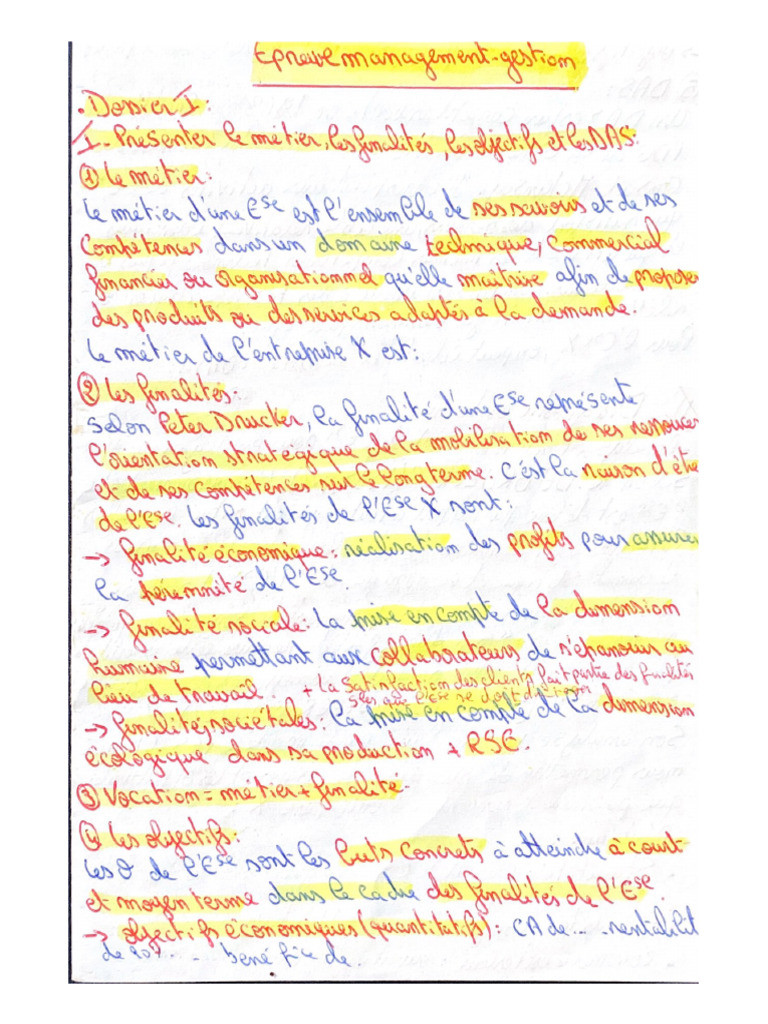 Epreuve management-gestion
• Dossier 1:
I- Présenter le métier, les finalités, les objectifs et les DAS:
① le métier:
le métier d'une Ese est l'ensemble de ses savoirs et de ses
compétences dans un domaine technique, commercial
financier ou organisationnel qu'elle maîtrise afin de proposer
des produits ou des services adaptés à la demande.
le métier de l'entreprise X est:
② les finalités:
Selon Peter Drucker, la finalité d'une Ese représente
l'orientation stratégique de la mobilisation de ses ressources
et de ses compétences sur le long terme. C'est la raison d'être
de l'Ese. les finalités de l'Ese X sont:
→ finalité économique: réalisation des profits pour assurer
la pérennité de l'Ese
→ finalité sociale: la mise en compte de la dimension
humaine permettant aux collaborateurs de s'épanouir au
lieu de travail. + la satisfaction des clients fait partie des finalités
que l'Ese se doit d'
→ finalités sociétales: la mise en compte de la dimension
écologique dans sa production + RSE.
③ Vocation = métier + finalité.
④ les objectifs:
les θ de l'Ese sont les buts concrets à atteindre à court
et moyen terme dans le cadre des finalités de l'Ese.
→ objectifs économiques (quantitatifs): CA de ... rentabilit
de 20%. - bénéfice de.